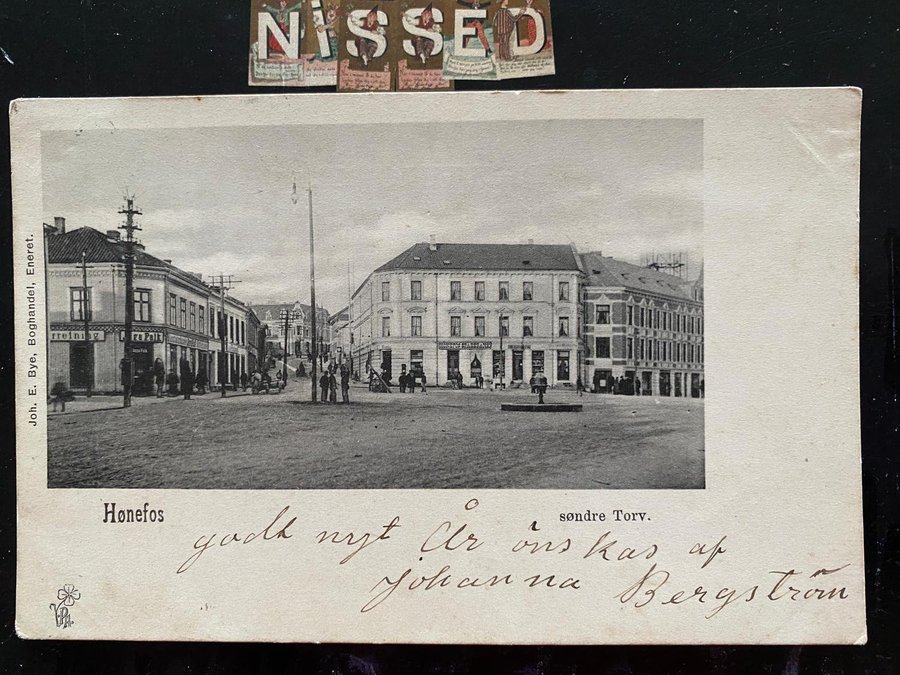 NiSSED
Joh. E. Bye, Boghandel, Eneret.
Hønefos
søndre Torv.
godt nyt År önskas af
Johanna Bergström